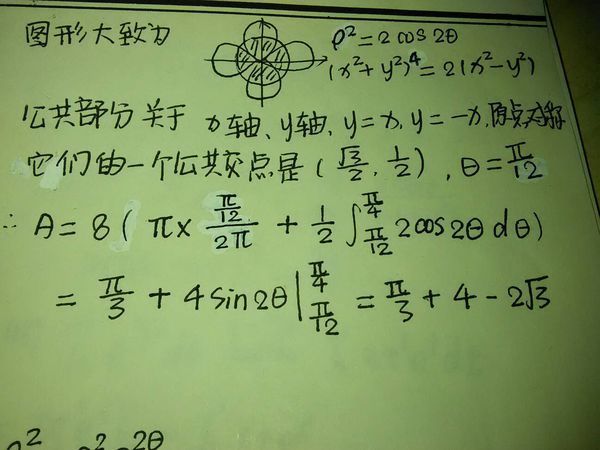 图形大致为
ρ² = 2 cos 2θ
(x²+y²)⁴ = 2(x²-y²)
公共部分关于 x轴、y轴、y=x, y=-x, 原点对称
它们由一个公共交点是 (√3/2, 1/2), θ = π/12
∴ A = 8 ( π × (π/12)/(2π) + 1/2 ∫_{π/12}^{π/4} 2cos2θ dθ )
= π/3 + 4 sin2θ |_{π/12}^{π/4} = π/3 + 4 - 2√3